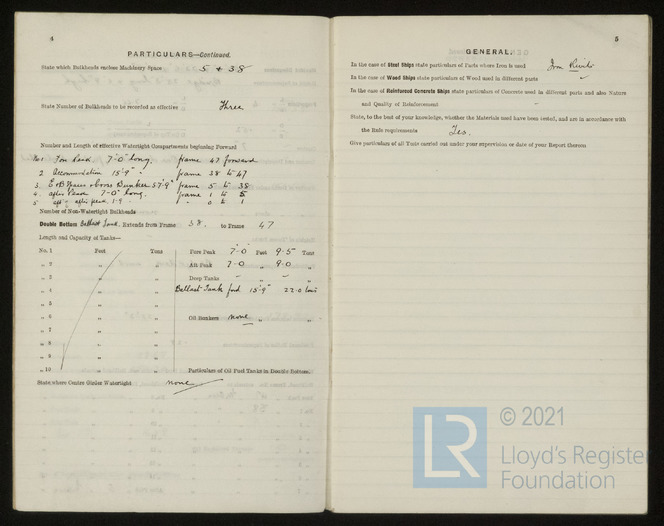 4
PARTICULARS—Continued.
State which Bulkheads enclose Machinery Space 5 + 38
State Number of Bulkheads to be recorded as effective Three
Number and Length of effective Watertight Compartments beginning Forward
No 1 Fore Peak 7'-0" long, frame 47 forward
2 Accommodation 15'-9" " frame 38 to 47
3. E & B Space & Cross Bunker 57'-9" frame 5 to 38
4. after Peak 7'-0" long. frame 1 to 5
5' aft " after peak. 1-9 " " 0 to 1
Number of Non-Watertight Bulkheads
Double Bottom Ballast Tank. Extends from Frame 38. to Frame 47
Length and Capacity of Tanks—
No. 1 Feet Tons Fore Peak 7'-0" Feet 9-5 Tons
„ 2 „ „ Aft Peak 7-0 „ 9-0 „
„ 3 „ „ Deep Tanks – „ – „
„ 4 „ „ Ballast Tank ford 15'-9" 22-0 tons
„ 5 „ „
„ 6 „ „ Oil Bunkers none „ „
„ 7 „ „
„ 8 „ „
„ 9 „ „
„ 10 „ „ Particulars of Oil Fuel Tanks in Double Bottom.
State where Centre Girder Watertight none
5
GENERAL.
In the case of Steel Ships state particulars of Parts where Iron is used Iron Rivets
In the case of Wood Ships state particulars of Wood used in different parts
In the case of Reinforced Concrete Ships state particulars of Concrete used in different parts and also Nature
and Quality of Reinforcement –
State, to the best of your knowledge, whether the Materials used have been tested, and are in accordance with
the Rule requirements Yes.
Give particulars of all Tests carried out under your supervision or date of your Report thereon
LR
© 2021
Lloyd's Register
Foundation